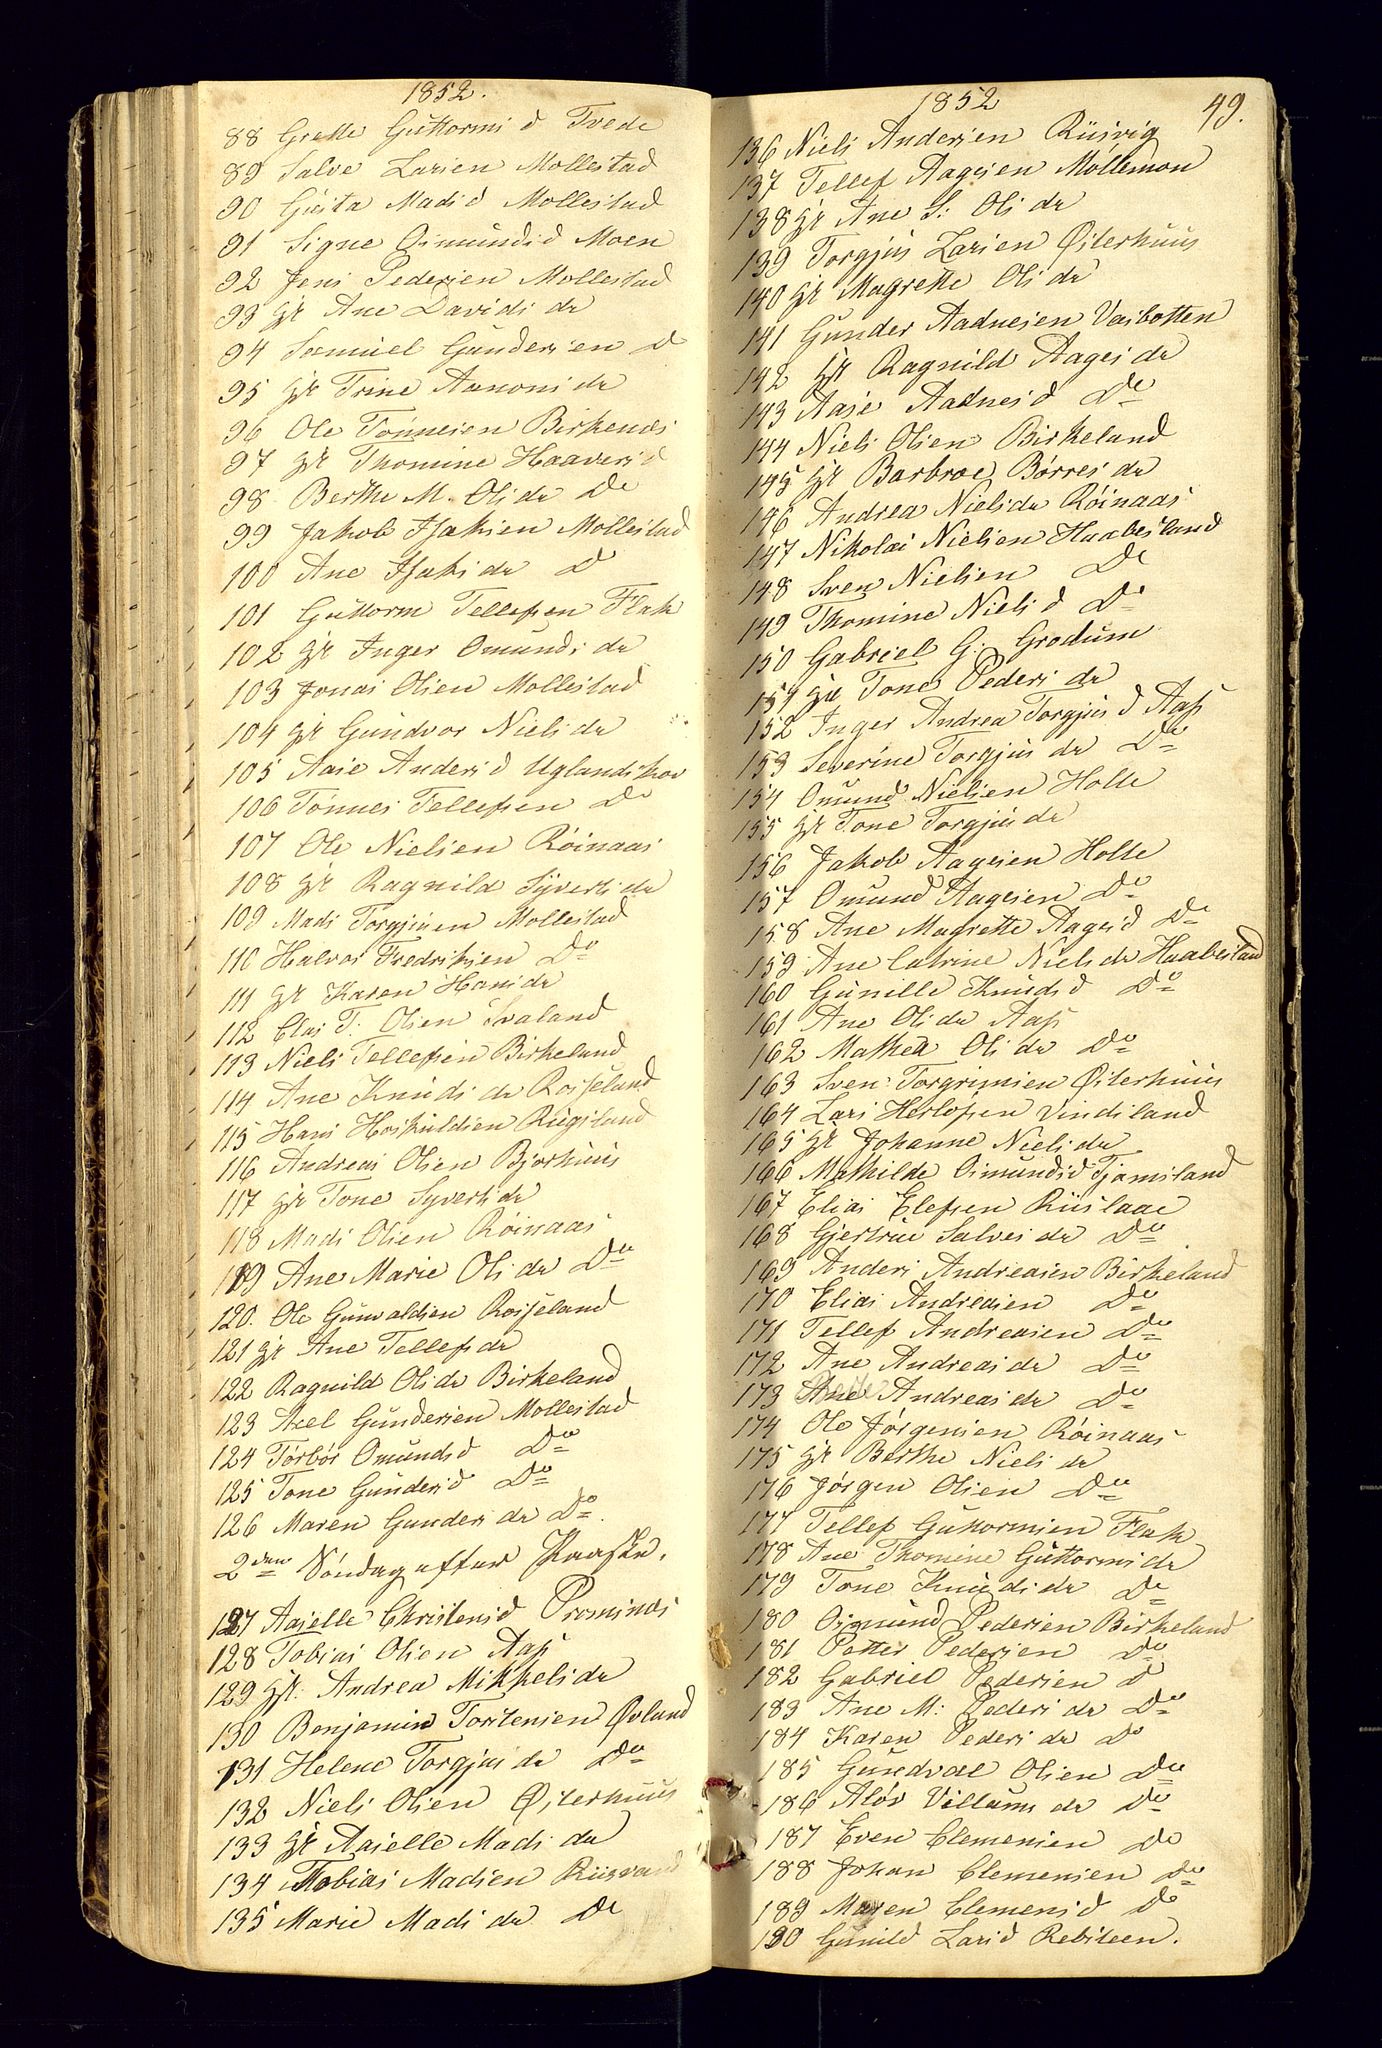 1852.
88 Grethe Guttorms d Tvede
89 Salve Larsen Mollestad
90 Gusta Mads d Mollestad
91 Signe Osmunds d Moen
92 Jens Pedersen Mollestad
93 gl Ane Davids dr
94 Samuel Gundersen do
95 gl Trine Aanons dr
96 Ole Tønnesen Birkenæs
97 gl Thomine Haavers d
98 Berthe M. Ols dr Do
99 Jakob Isaksen Mollestad
100 Ane Isaks dr D
101 Guttorm Tellefsen Flak
102 gl Inger Omunds dr
103 Jonas Olsen Mollestad
104 gl Gundvor Niels dr
105 Aase Anders d Uglandskov
106 Tønnes Tellefsen Do
107 Ole Nielsen Røinaas
108 gl Ragnild Syverts dr
109 Mads Torgjusen Mollestad
110 Halvor Fredriksen Do
111 gl Karen Hans dr
112 Clas T. Olsen Svaland
113 Niels Tellefsen Birkeland
114 Ane Knuds dr Rosseland
115 Hans Hoskuldsen Rugsland
116 Andreas Olsen Bjorhuus
117 gl Tone Syverts dr
118 Mads Olsen Røinaas
119 Ane Marie Ols dr Do
120. Ole Gunvaldsen Rosseland
121 gl Ane Tellefs dr
122 Ragnild Ols dr Birkeland
123 Axel Gundersen Mollestad
124 Torbor Omunds d Do
125 Tone Gunders d Do
126 Maren Gunders dr Do.
2den Søndag efter Paaske.
127 Aaselle Christens d Præsnes
128 Tobias Olsen Aas
129 gl. Andrea Mikkels dr
130 Benjamin Torstensen Øvland
131 Helene Torgjus dr Do
132 Niels Olsen Østerhuus
133 gl Aaselle Mads dr
134 Tobias Madsen Risvand
135 Marie Mads dr Do
1852
49.
136 Niels Andersen Rusvig
137 Tellef Aagesen Møllemon
138 gl Ane S: Ols dr
139 Torgjus Larsen Østerhuus
140 gl Magrethe Ols dr
141 Gunder Aadnesen Vasbotten
142 gl Ragnild Aages dr
143 Aase Aadnes d Do
144 Niels Olsen Birkeland
145 gl Barbroe Børres dr
146 Andrea Niels dr Røinaas
147 Nikolai Nielsen Haabesland
148 Sven Nielsen Do
149 Thomine Niels d Do
150 Gabriel G: Grødum
151 gl Tone Peders dr
152 Inger Andrea Torgjus d Aas
153 Severine Torgjus dr Do
154 Omund Nielsen Holte
155 gl Tone Torgjus dr
156 Jakob Aagesen Holte
157 Omund Aagesen Do
158 Ane Magrethe Aages d Do
159 Ane Catrine Niels dr Haabesland
160 Gunille Knuds d Do
161 Ane Ols dr Aas
162 Mathea Ols dr Do
163 Sven Torgrimsen Østerhuus
164 Lars Herlofsen Vindsland
165 gl Johanne Niels dr
166 Mathilde Osmunds d Tjamsland
167 Elias Elefsen Ruslaae
168 Gjertrue Salves dr Do
169 Anders Andreasen Birkeland
170 Elias Andreasen Do
171 Tellef Andreasen Do
172 Ane Andreas dr Do
173 Ane Andreas dr Do
174 Ole Jørgensen Røinaas
175 gl Berthe Niels dr
176 Jørgen Olsen Do
177 Tellef Guttormsen Flak
178 Ane Thomine Guttorms dr
179 Tone Knuds dr Do
180 Osmund Pedersen Birkeland
181 Petter Pedersen Do
182 Gabriel Pedersen d
183 Ane M: Peders dr Do
184 Karen Peders dr Do
185 Gundval Olsen Do
186 Aløv Villums dr Do
187 Even Clemensen Do
188 Johan Clemensen Do
189 Maren Clemens d Do
190 Gunild Lars d Rebsteen.